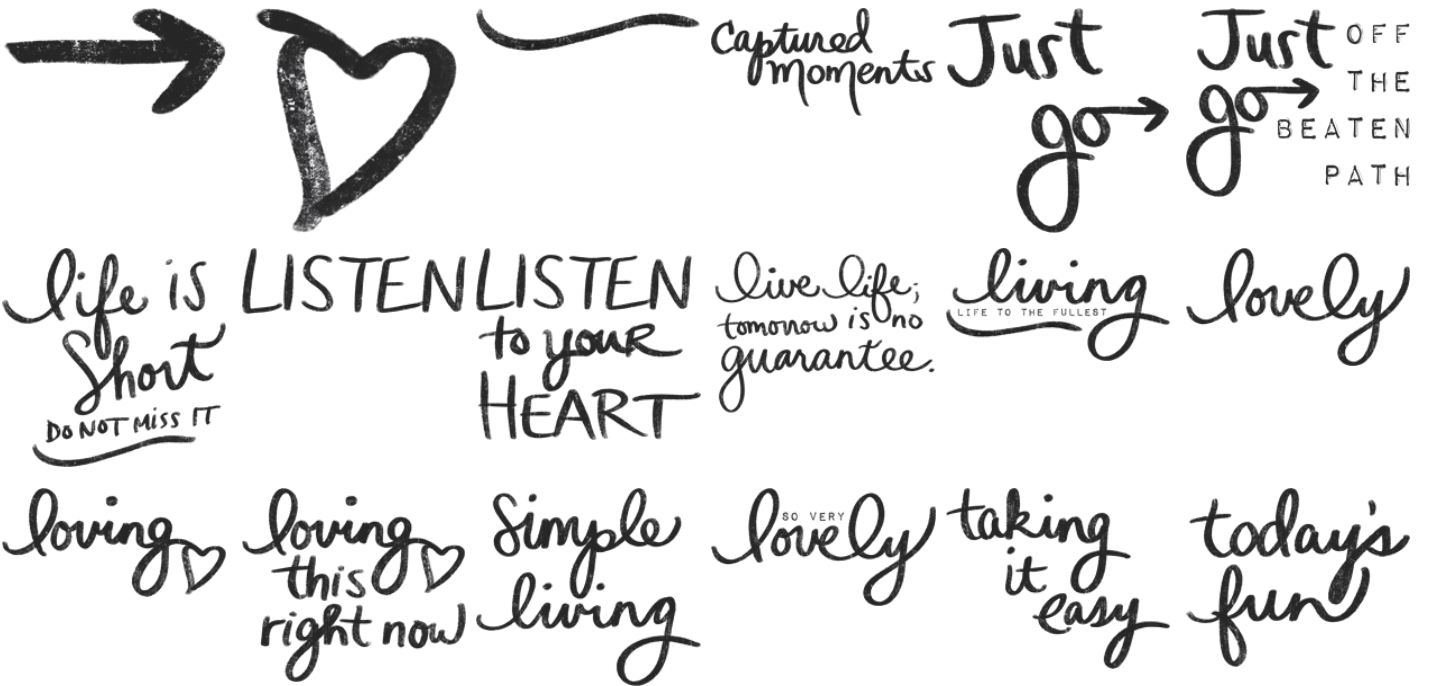 Captured
moments
Just
go
Just
go
OFF
THE
BEATEN
PATH
life is
Short
DO NOT MISS IT
LISTEN
LISTEN
to your
HEART
live life;
tomorrow is no
guarantee.
living
LIFE TO THE FULLEST
lovely
loving
loving
this
right now
Simple
living
SO VERY
lovely
taking
it
easy
today's
fun